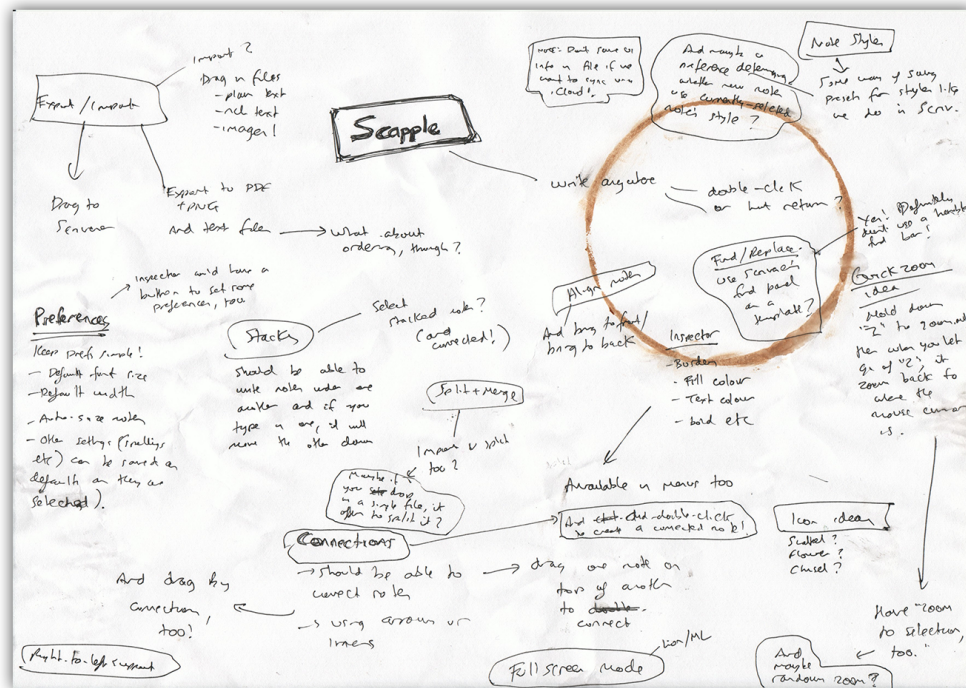 Import?
Drag in files
- plain text
- rich text
- images!
Export/Import
Drag to
Scrivener
Export to PDF
+ PNG
And text files
What about
ordering, though?
Scapple
NOTE: Don't save UI
info in file if we
want to sync via
iCloud!
And maybe a
preference determining
whether new notes
use currently-selected
note's style?
Note Styles
Some way of saving
presets for styles like
we do in Scriv.
write anywhere
double-click
or hit return?
Yes! Definitely
don't use a
find bar!
Find/Replace.
Use Scrivener's
find panel
as a
template?
Align notes
And bring to front/
bring to back
Quick zoom
idea
Hold down
"Z" to zoom out
then when you let
go of "Z", it
zooms back to
where the
mouse cursor
is.
Inspector could have a
button to set some
preferences, too
Preferences
Keep prefs simple!
- Default font size
- Default width
- Auto-size notes
- Other settings (
etc) can be saved as
defaults as they are
selected).
Stacks
Select
stacked notes?
(and
connected!)
should be able to
write notes under one
another and if you
type in one, it will
move the other down
Split + Merge
Import & split
too?
Maybe if
you drop
in a single file, it
offers to split it?
Inspector
- Border
- Fill colour
- Text colour
- bold etc
Available in menus too
And cmd-double-click
to create a connected note!
Icon ideas
Scalpel?
Flower?
Chisel?
Connections
→ Should be able to
connect notes
→ using arrows or
lines
drag one note on
top of another
to
connect
And drag by
connection,
too!
Right-to-left support
Full screen mode
Lion/ML
Have "zoom
to selection,
too."
And
maybe
random zoom?